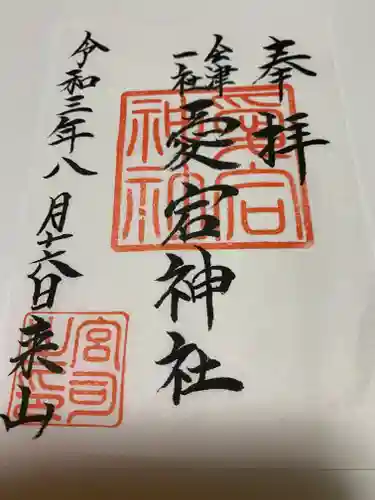 奉拝
会津
一社
愛宕神社
愛宕
神社
令和三年八月十六日来山
宮司
之印